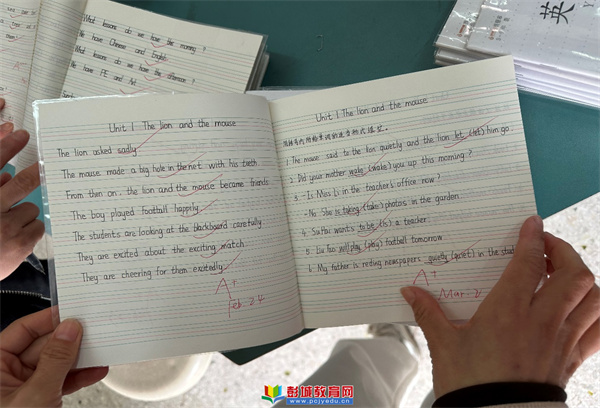 What lessons do we have this morning?
We have Chinese and English.
What lessons do we have this afternoon?
We have PE and Art.
Unit 1 The lion and the mouse
The lion asked sadly.
The mouse made a big hole in the net with his teeth.
From then on, the lion and the mouse became friends.
The boy played football happily.
The students are looking at the blackboard carefully.
They are excited about the exciting match.
They are cheering for them excitedly.
A+
Feb. 24
Unit 1 The lion and the mouse
用括号内所给单词的适当形式填空。
1. The mouse said to the lion quietly and the lion let (let) him go.
2. Did your mother wake (wake) you up this morning?
3. - Is Miss Li in the teacher's office now?
- No. She is taking (take) photos in the garden.
4. Su Hai wants to be (is) a teacher.
5. Liu Tao will play (play) football tomorrow.
6. My father is reding newspapers quietly (quiet) in the
A+
Mar. 2
英
彭城教育网
www.pcjyedu.cn